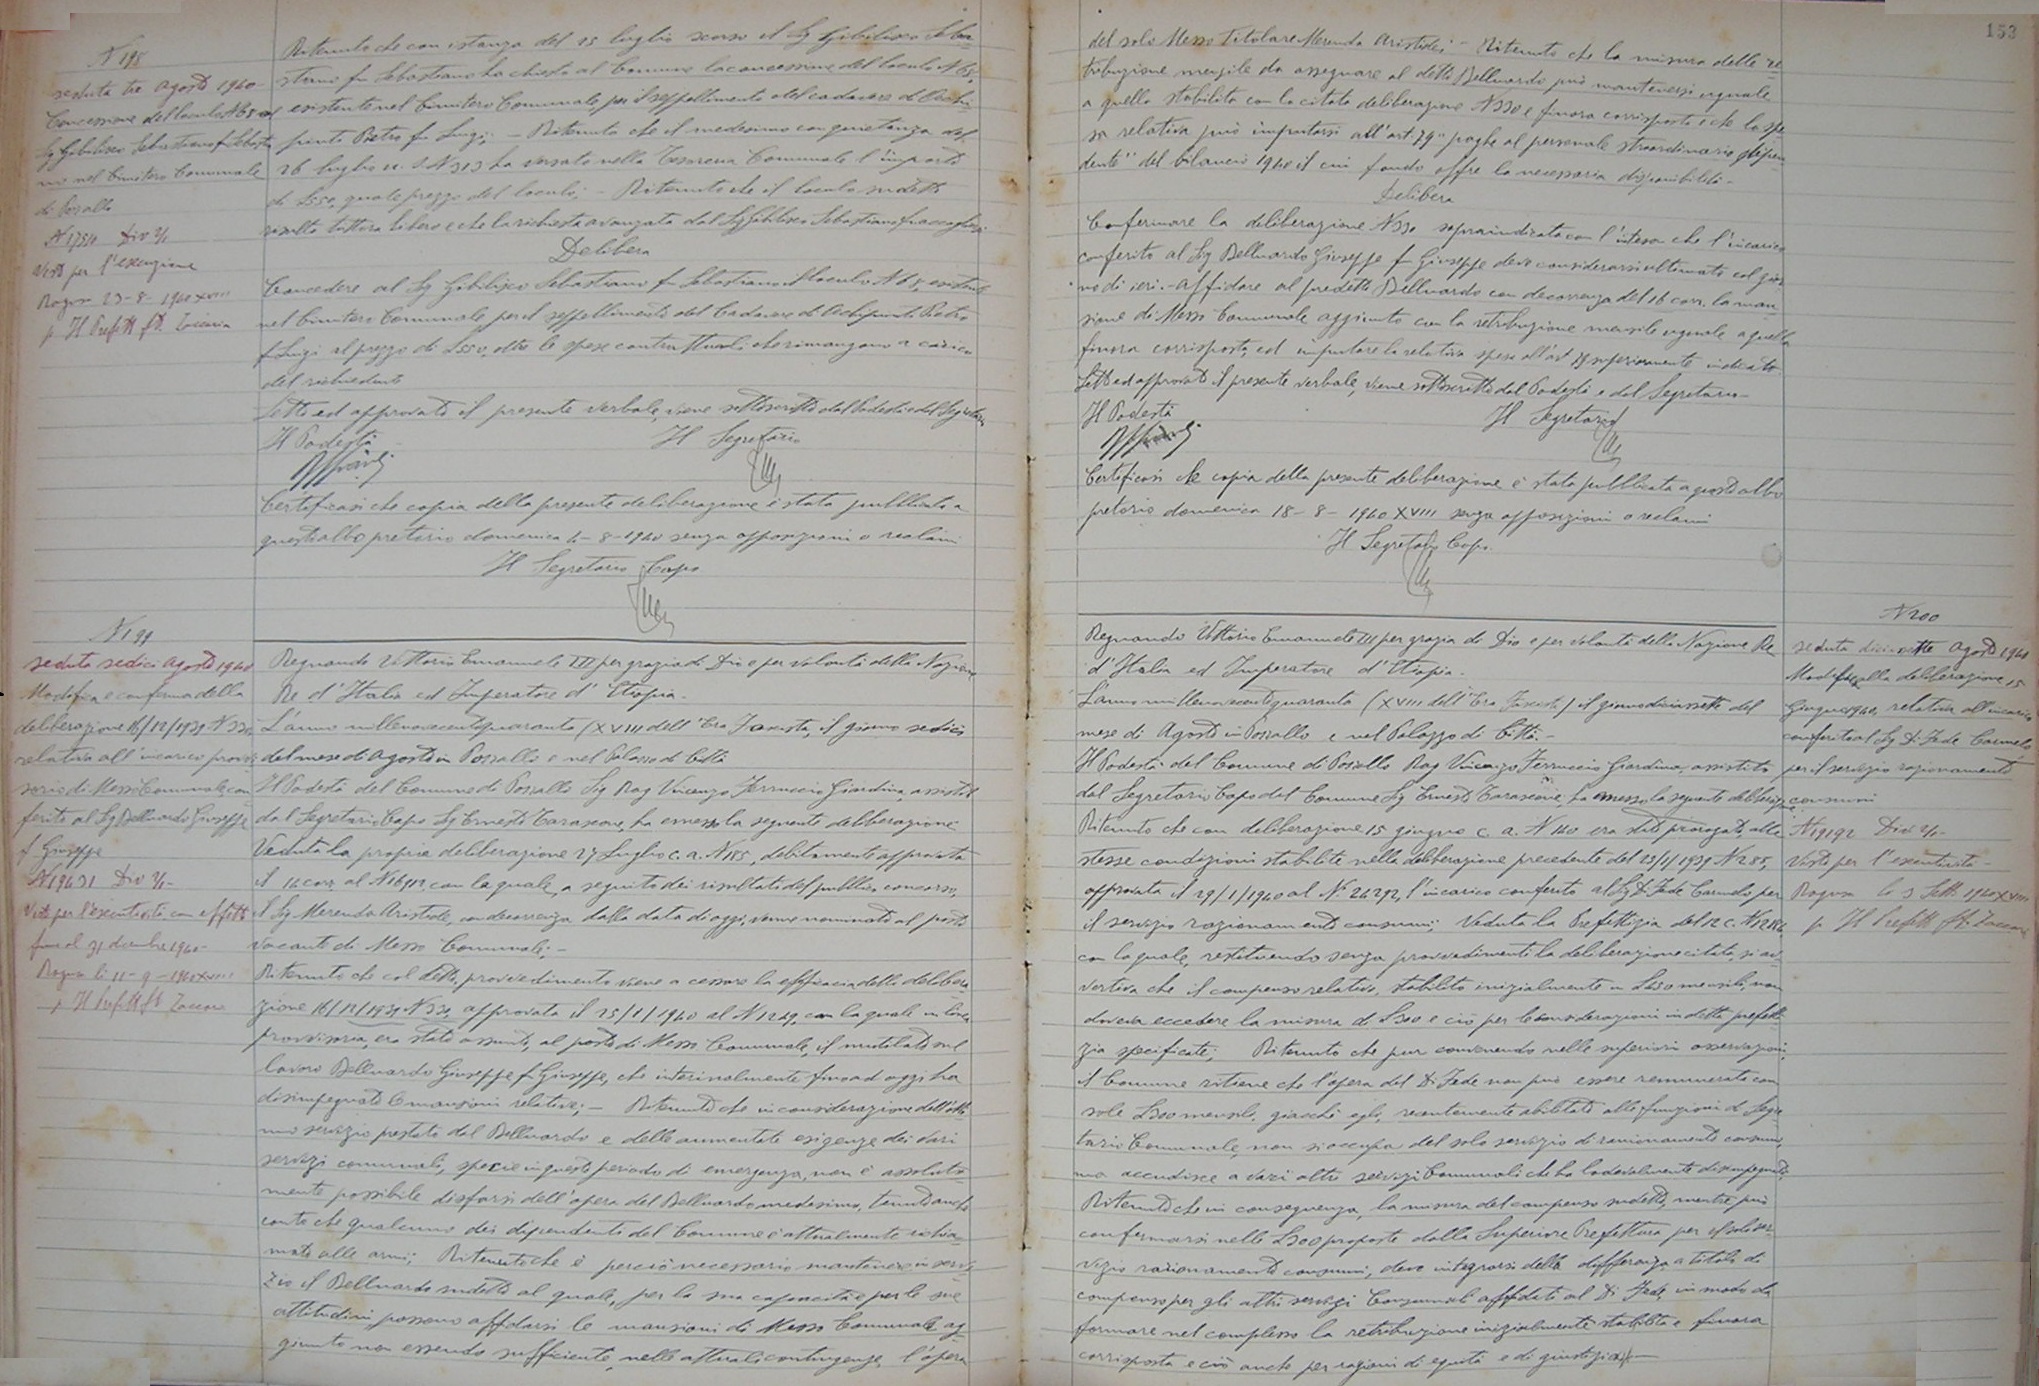 N 198
seduta tre Agosto 1940
Concessione del loculo N 68 al
Sg Gibilisco Sebastiano f Sebastia
no nel Cimitero Comunale
di Pozzallo
N 17511 Div 2/1
Visto per l'esecuzione
Ragusa 23-8-1940 XVIII
p Il Prefetto ft. Zaccaria
Ritenuto che con istanza del 25 luglio scorso il Sg Gibilisco Seba-
stiano fu Sebastiano ha chiesto al Comune la concessione del loculo N 68,
esistente nel Cimitero Comunale per il seppellimento del cadavere di
Pietro fu Luigi; - Ritenuto che il medesimo con quietanza del
26 luglio u. s. N 313 ha versato nella Tesoreria Comunale l'importo
di L 550, quale prezzo del loculo; - Ritenuto che il loculo sudetto
risulta tuttora libero e che la richiesta avanzata dal Sg Gibilisco Sebastiano
Delibera
Concedere al Sg Gibilisco Sebastiano fu Sebastiano il loculo N 68 esistente
nel Cimitero Comunale per il seppellimento del Cadavere di Pietro
f Luigi al prezzo di L 550, oltre le spese contrattuali che rimangono a carico
del richiedente
Letto ed approvato il presente verbale, viene sottoscritto dal Podestà e dal Segretario
Il Podestà Il Segretario
Certificasi che copia della presente deliberazione è stata pubblicata a
questo albo pretorio domenica 4-8-1940 senza opposizioni o reclami
Il Segretario Capo
N 199
seduta sedici Agosto 1940
Modifica e conferma della
deliberazione 16/12/1939 N 330
relativa all'incarico provvi
sorio di Messo Comunale con
ferito al Sg Belluardo Giuseppe
f Giuseppe
N 19431 Div 2/1-
Visto per l'esecutività con effetto
fino al 31 dicembre 1940-
Ragusa li 11-9-1940 XVIII
p Il Prefetto ft Zaccaria
Regnando Vittorio Emanuele III per grazia di Dio e per volontà della Nazione
Re d'Italia ed Imperatore d'Etiopia -
L'anno millenovecentoquaranta (XVIII dell'Era Fascista, il giorno sedici
del mese di Agosto in Pozzallo e nel Palazzo di Città
Il Podestà del Comune di Pozzallo Sig Rag Vincenzo Ferruccio Giardina, assistito
dal Segretario Capo Sg Ernesto Tarascone, ha emesso la seguente deliberazione
Veduta la propria deliberazione 27 Luglio c. a. N 185, debitamente approvata
il 14 corr al N 16912 con la quale, a seguito dei risultati del pubblico concorso,
il Sg Merenda Aristide, con decorrenza dalla data di oggi, venne nominato al posto
vacante di Messo Comunale; -
Ritenuto che col detto provvedimento viene a cessare la efficacia della delibera
zione 16/12/1939 N 330, approvata il 25/1/1940 al N 1249, con la quale in linea
provvisoria, era stato assunto, al posto di Messo Comunale, il mutilato sul
lavoro Belluardo Giuseppe f Giuseppe, che interinalmente fino ad oggi ha
disimpegnato le mansioni relative; - Ritenuto che in considerazione dell'otti
mo servizio prestato dal Belluardo e delle aumentate esigenze dei vari
servizi comunali, specie in questo periodo di emergenza, non è assoluta
mente possibile disfarsi dell'opera del Belluardo medesimo, tenuto anche
conto che qualcuno dei dipendenti del Comune è attualmente richia
mato alle armi; Ritenuto che è perciò necessario mantenere in servi
zio il Belluardo sudetto al quale, per la sua capacità e per le sue
attitudini possono affidarsi le mansioni di Messo Comunale ag
giunto non essendo sufficiente, nelle attuali contingenze, l'opera
153
del solo Messo titolare Merenda Aristide; - Ritenuto che la misura della re
tribuzione mensile da assegnare al detto Belluardo può mantenersi uguale
a quella stabilita con la citata deliberazione N 330 e finora corrisposta e che la spe
sa relativa può imputarsi all'art. 79 "paghe al personale straordinario dipen
dente" del bilancio 1940 il cui fondo offre la necessaria disponibilità -
Delibera
Confermare la deliberazione N 330 sopraindicata con l'intesa che l'incarico
conferito al Sig Belluardo Giuseppe f Giuseppe deve considerarsi ultimato col gior
no di ieri. - Affidare al predetto Belluardo con decorrenza del 16 corr. la man
sione di Messo Comunale aggiunto con la retribuzione mensile uguale a quella
finora corrisposta, ed imputare la relativa spesa all'art 79 superiormente indicato
Letto ed approvato il presente verbale, viene sottoscritto dal Podestà e dal Segretario -
Il Podestà Il Segretario
Certificasi che copia della presente deliberazione è stata pubblicata a questo albo
pretorio domenica 18-8-1940 XVIII senza opposizioni o reclami
Il Segretario Capo
Regnando Vittorio Emanuele III per grazia di Dio e per volontà della Nazione Re
d'Italia ed Imperatore d'Etiopia -
L'anno millenovecentoquaranta (XVIII dell'Era Fascista) il giorno diciassette del
mese di Agosto in Pozzallo e nel Palazzo di Città -
Il Podestà del Comune di Pozzallo Rag Vincenzo Ferruccio Giardina, assistito
dal Segretario Capo del Comune Sg Ernesto Tarascone, ha emesso la seguente deliberazione
Ritenuto che con deliberazione 15 giugno c. a. N 140 era stato prorogato, alle
stesse condizioni stabilite nella deliberazione precedente del 23/11/1939 N 285,
approvata il 29/1/1940 al N. 26292, l'incarico conferito al Sg Di Fede Carmelo, per
il servizio razionamento consumi; Veduta la Prefettizia del 12 c.
con la quale, restituendo senza provvedimenti la deliberazione citata, si av
vertiva che il compenso relativo, stabilito inizialmente in mensili, non
doveva eccedere la misura di L 300 e ciò per le considerazioni in detta prefetti
zia specificate; Ritenuto che pur convenendo nelle superiori osservazioni
il Comune ritiene che l'opera del Di Fede non può essere remunerata con
sole L 300 mensili, giacchè egli, recentemente abilitato alle funzioni di Segre
tario Comunale, non si occupa del solo servizio di razionamento consumi,
ma accudisce a vari altri servizi Comunali che ha lodevolmente disimpegnato;
Ritenuto che in conseguenza, la misura del compenso sudetto, mentre può
confermarsi nelle L 300 proposte dalla Superiore Prefettura per il solo ser
vizio razionamento consumi, deve integrarsi della differenza a titolo di
compenso per gli altri servizi Comunali affidati al Di Fede, in modo da
formare nel complesso la retribuzione inizialmente stabilita e finora
corrisposta e ciò anche per ragioni di equità e di giustizia; -
N 200
seduta diciassette Agosto 1940
Modifica alla deliberazione 15
Giugno 1940, relativa all'incarico
conferito al Sg Di Fede Carmelo
per il servizio razionamento
consumi
N 19192 Div 2/1-
Visto per l'esecutività -
Ragusa li 3 Sett. 1940 XVIII
p Il Prefetto ft. Zaccaria